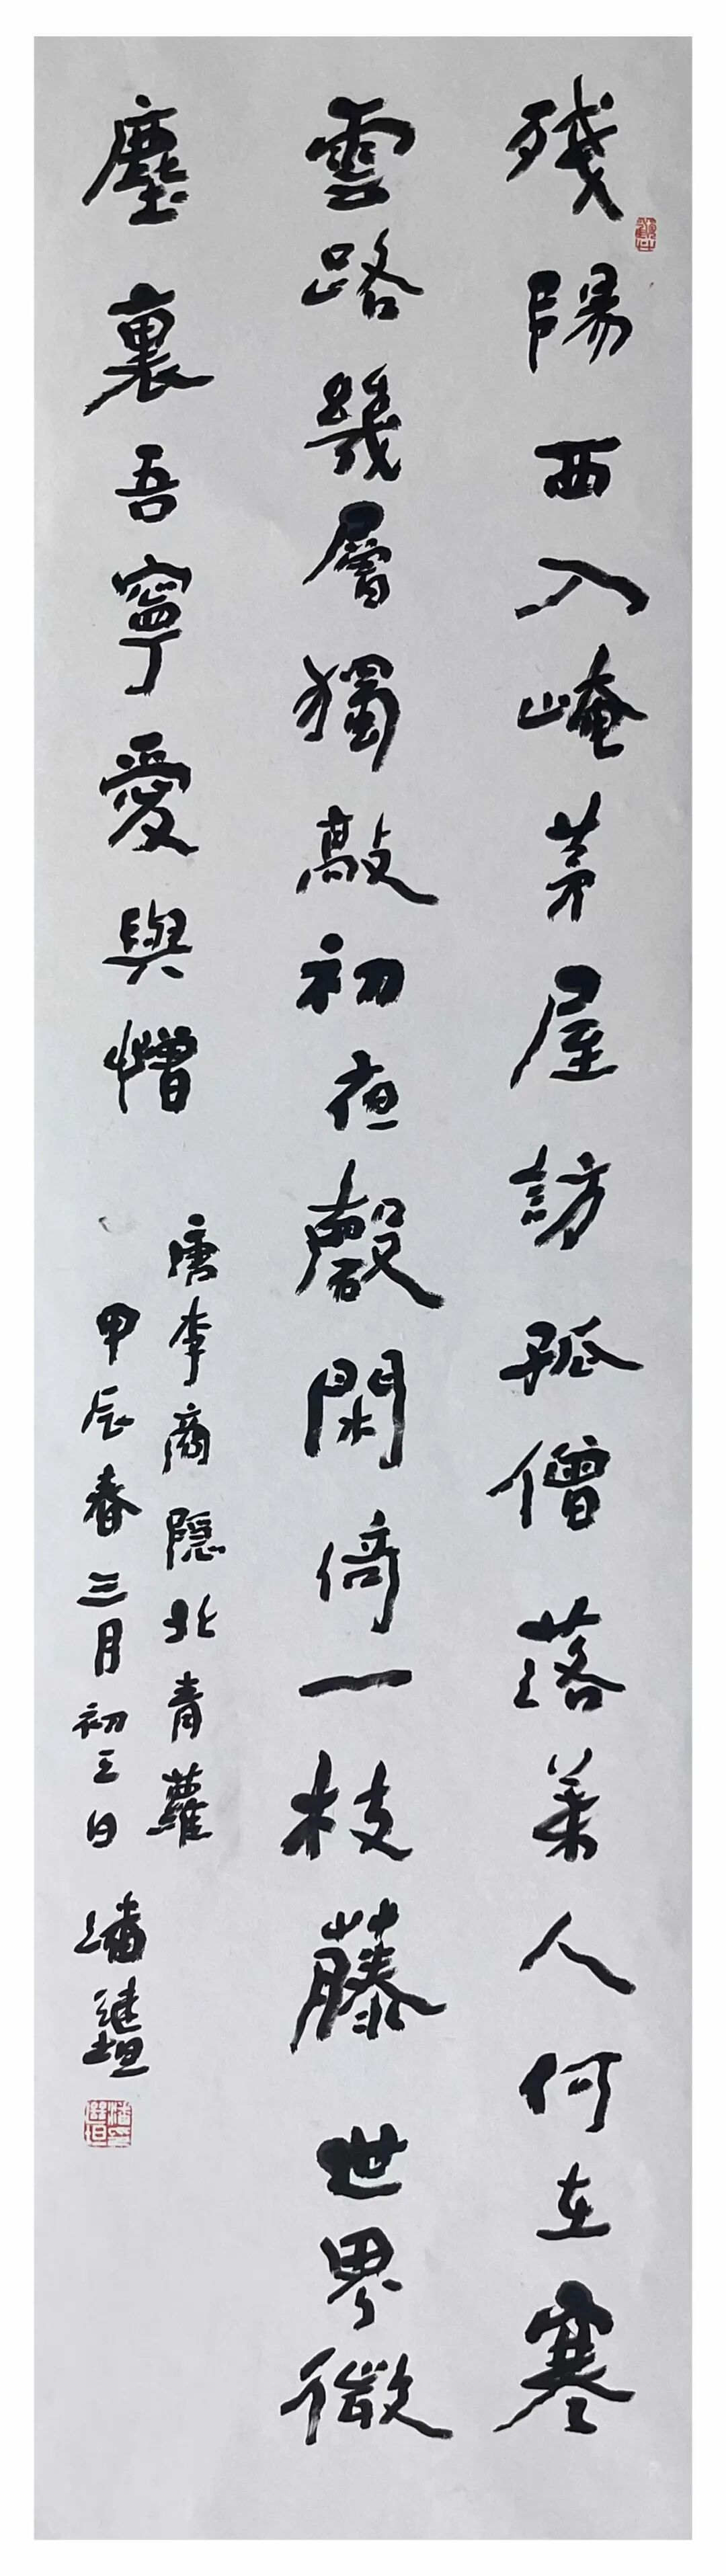 殘陽西入崦茅屋訪孤僧落葉人何在寒
雲路幾層獨敲初夜磬閑倚一枝藤世界微
塵裏吾寧愛與憎
唐李商隱北青蘿
甲辰春三月初三日潘繼坦